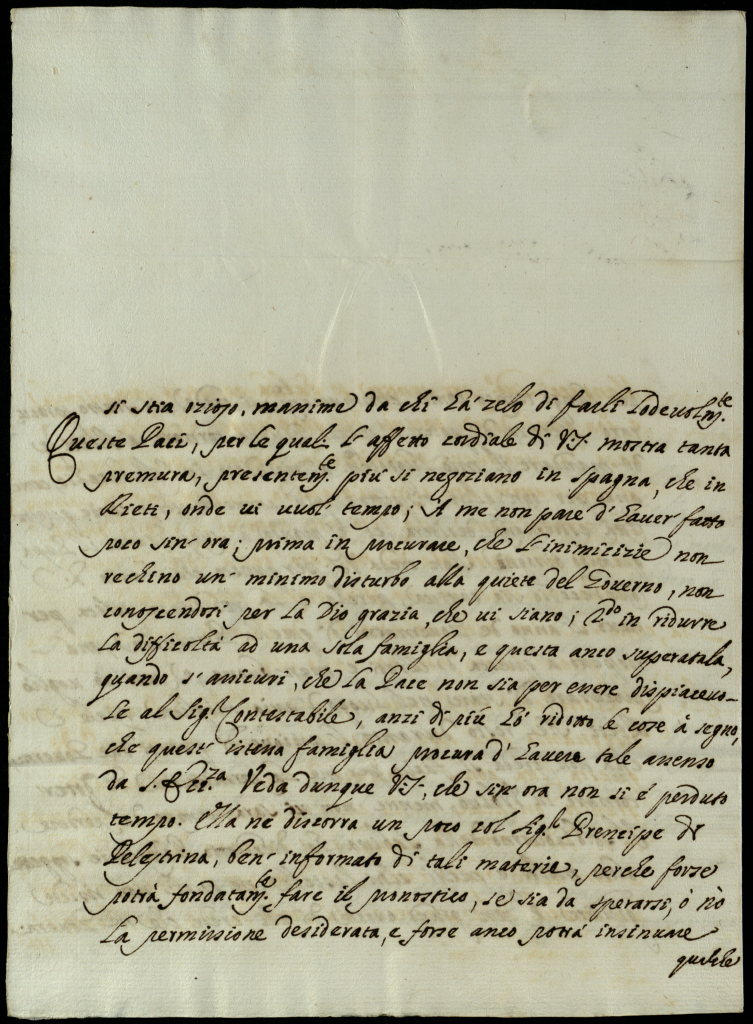 si stia ozioso, massime da chi hà zelo di farli lodevolm.te
Queste Paci, per le quali l'affetto cordiale di V.S. mostra tanta
premura, presentem.te più si negoziano in Spagna, che in
Rieti, onde vi vuol tempo; A me non pare d'haver fatto
poco sin'ora; prima in procurare, che l'inimicizie non
rechino un minimo disturbo alla quiete del Governo, non
conoscendosi per la Dio grazia, che vi siano; 2.do in ridurre
la difficoltà ad una sola famiglia, e questa anco superatala,
quando s'assicuri, che la Pace non sia per essere dispiacevo-
le al Sig.r Contestabile, anzi di più hò ridotto le cose à segno,
che quest'istessa famiglia procura d'havere tale assenso
da S. Ecc.za Veda dunque V.S., che sin'ora non si è perduto
tempo. Ella ne discorra un poco col Sig.r Prencipe di
Pelestrina, ben'informato di tali materie, perche forse
potrà fondatam.te fare il pronostico, se sia da sperarsi, ò nò
la permissione desiderata, e forse anco potrà insinuare
qualche